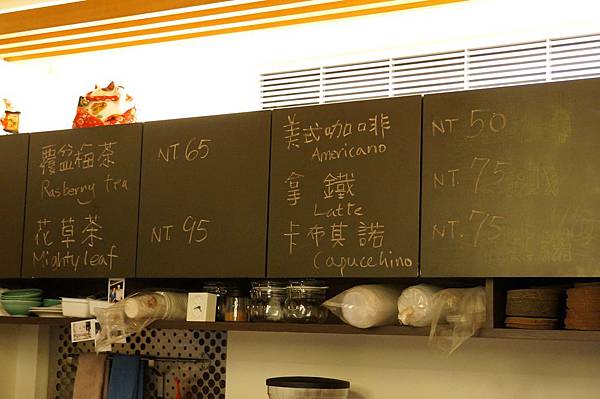 覆盆梅茶 NT. 65
Rasberry tea
花草茶 NT. 95
Mighty leaf
美式咖啡 NT. 50
Americano
拿鐵 NT. 75
Latte
卡布其諾 NT. 75
Capucchino